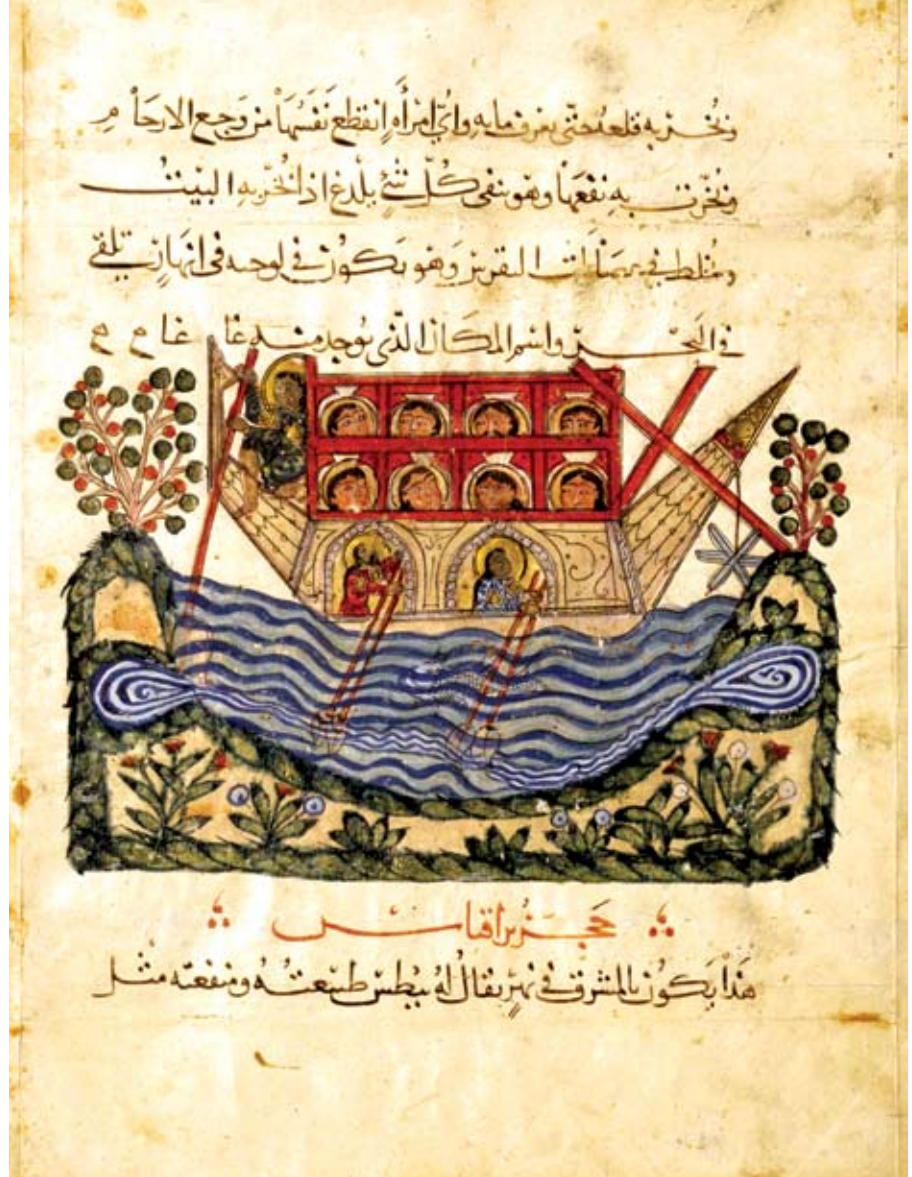 ونخر به قلعه حتى يعرف ما به واي امراه انقطع نفسها من وجع الارحام
ونخرت به نفعها وهو ينفى كل شئ يلدغ اذا نخر به البيت
ويخلط في النقرس وهو يكون في لوحيه فى انهار تلقى
في البحر واسم المكان الذى يوجد منه غاغا
حجر براقياس
هذا يكون بالمشرق في نهر يقال له بنطس طبيعته ومنفعته مثل